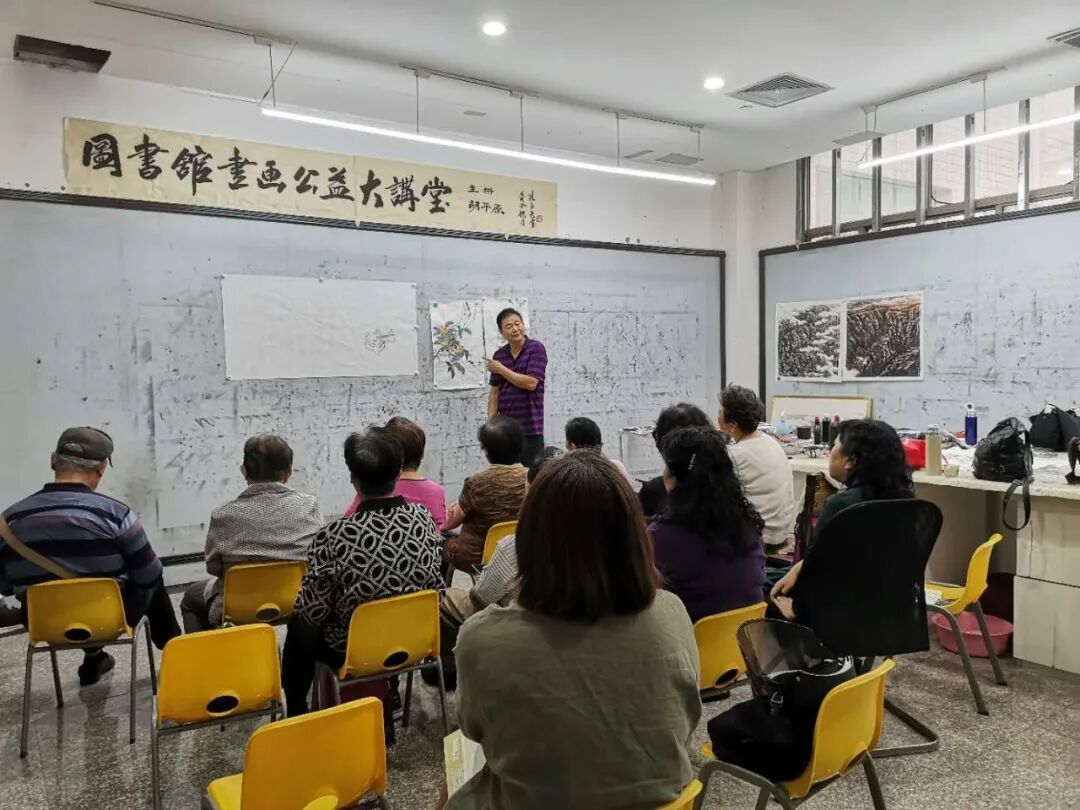 圖書館書画公益大講堂
主讲
胡平原